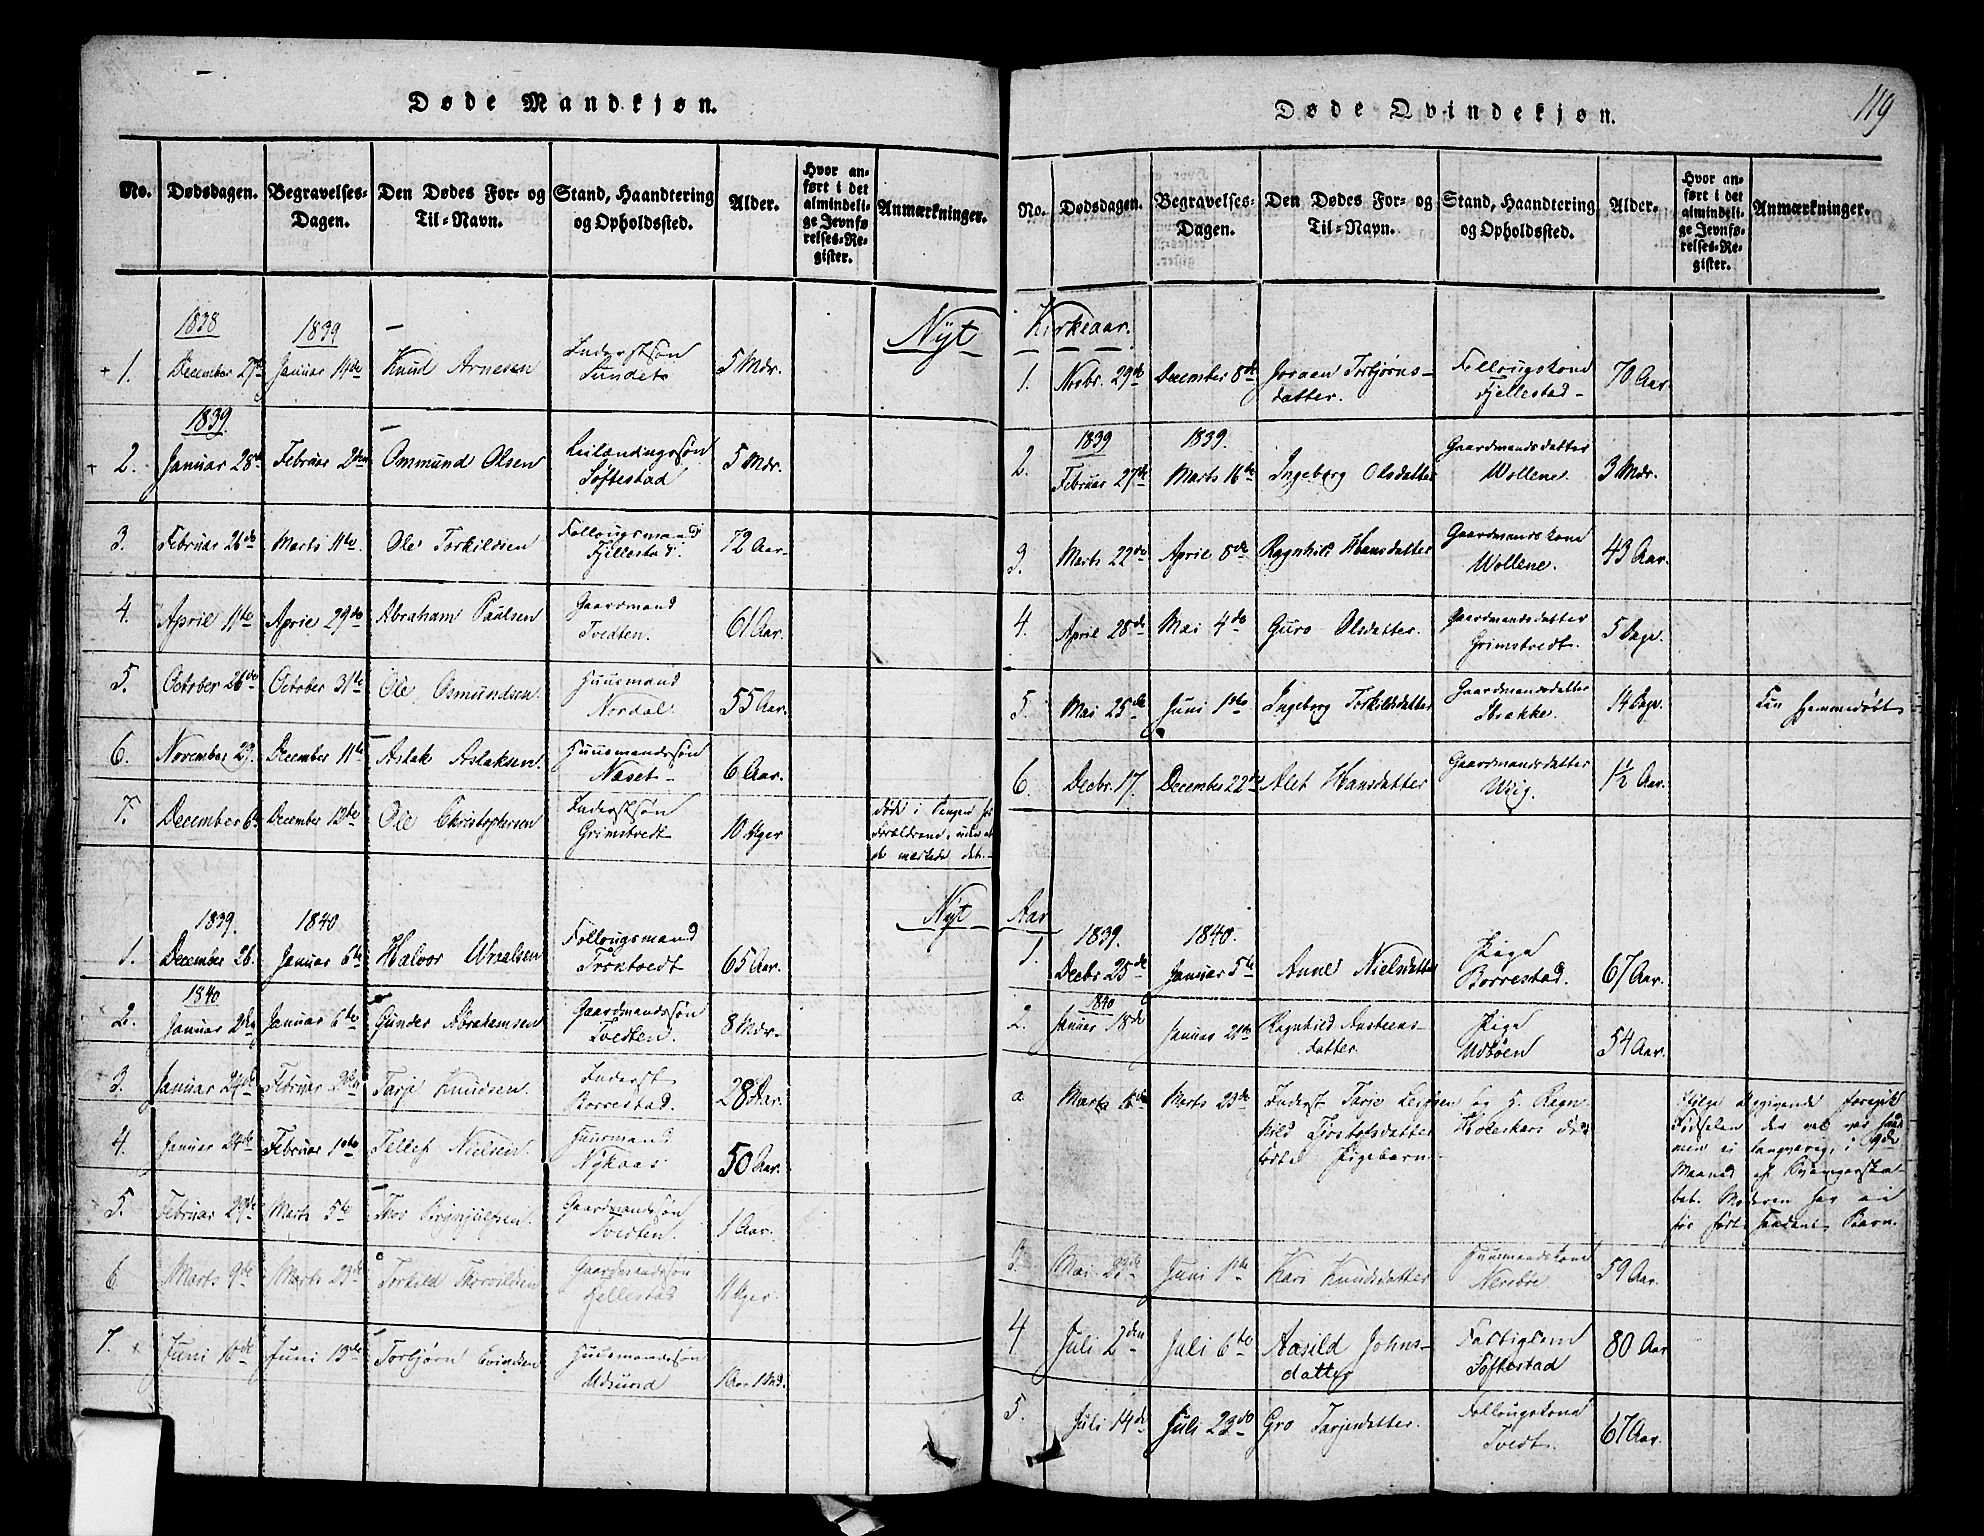 Døde Mandkjøn.
No. Dødsdagen. Begravelses-Dagen. Den Dødes For- og Til-Navn. Stand, Haandtering og Opholdssted. Alder. Hvor anført i det almindelige Jevnførelses-Register. Anmærkninger.
1838 1839 Nyt
1. December 27de Januar 14de Knud Arnesen Inderstsøn Sundet 5 Mdr.
1839.
2. Januar 28de Februar 2den Ommund Olsen Leilændingssøn Tøftestad 5 Mdr.
3. Februar 26de Marts 11te Ole Torkildsen Follougsmand Fjellestad. 72 Aar.
4. April 11te April 29de Abraham Paulsen Gaardmand Tvedten. 61 Aar.
5. October 26de October 31te Ole Osmundsen. Huusmand Nordal 55 Aar.
6. November 29. December 11te Aslak Aslaksen. Huusmandssøn Næset 6 Aar.
7. December 6te December 12te Ole Christophersen Inderstsøn Grimstvedt 10 Uger døde i Sengen hos Forældrene, uden at de mærkede det.
1839. 1840 Nyt
1. December 26. Januar 6te Halvor Wrialsen Follougsmand Troktvedt 65 Aar.
1840
2. Januar 2den Januar 6te Gunder Abrahamsen Gaardmandssøn Tvedten. 8 Mdr.
3. Januar 24de Februar 2den Tarje Knudsen Inderst Borrestad. 28 Aar.
4. Januar 24de Februar 1ste Tellef Nielsen. Huusmand Nykaas 50 Aar.
5. Februar 29de Marts 5te Thor Brynjulfsen. Gaardmandssøn Tvedten. 1 Aar.
6 Marts 9de Marts 23de Torkild Thorvildsen Gaardmandssøn Fjellestad 11 Uger
7. Juni 10de Juni 13de Torbjørn Evindsen Huusmandssøn Udsund 1 Aar 1 Md.
Døde Qvindekjøn.
119
No. Dødsdagen. Begravelses-Dagen. Den Dødes For- og Til-Navn. Stand, Haandtering og Opholdssted. Alder. Hvor anført i det almindelige Jevnførelses-Register. Anmærkninger.
Kirkeaar.
1. Novbr. 29de December 8de Joraen Torbjørnsdatter. Follougskone Fjellestad 70 Aar.
1839 1839.
2. Februar 27de Marts 16te Ingeborg Olsdatter Gaardmandsdatter Wollene. 3 Mdr.
3. Marts 22de April 8de Ragnhild Hansdatter Gaardmandskone Wollene. 43 Aar.
4. April 28de Mai 4de Guro Olsdatter. Gaardmandsdatter Grimstvedt. 5 Dage.
5. Mai 25de Juni 1ste Ingeborg Torkildsdatter Gaardmandsdatter Brække. 14 Dage. Kun hjemmedøbt
6. Decbr. 17. December 22de Alet Hansdatter Gaardmandsdatter Uvig. 1½ Aar.
Aar
1839. 1840.
1. Decbr. 25de Januar 5te Anne Nielsdatter Pige Borrestad. 67 Aar.
1840
2. Januar 18de Januar 21de Ragnhild Austensdatter. Pige Udbøen 54 Aar.
a Marts 15de Marts 23de Inderst Tarje Leifsen og H. Ragnhild Torstofsdatter Holeskars dødfødte Pigebarn.
Ifølge Opgivende foregik Fødselen der vel var haard men ei langvarig, i 9de Maaned af Svangerskabet. Moderen har ei før født saadant Barn.
3. Mai 23de Juni 1ste Kari Knudsdatter Huusmandskone Nerebøe 59 Aar.
4 Juli 2den Juli 6te Aasild Johnsdatter Fattiglem Tøftestad 80 Aar
5. Juli 14de Juli 23de Gro Tarjesdatter. Follougskone Tvedt. 67 Aar.